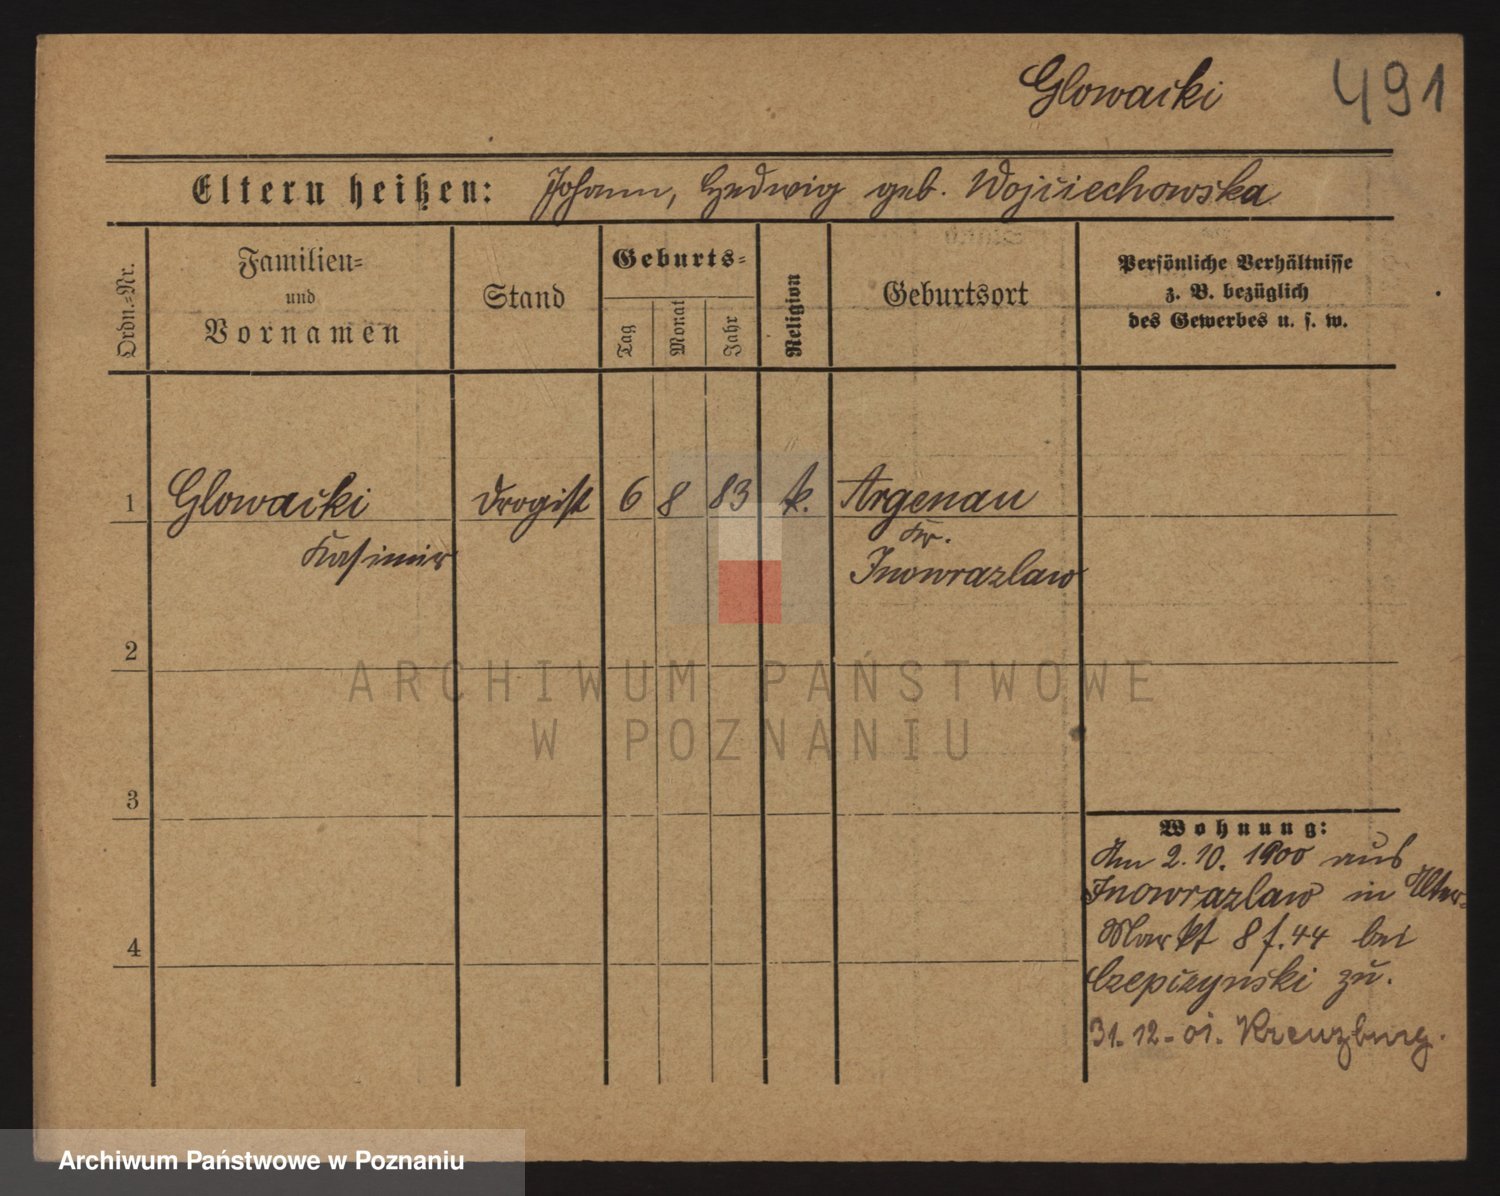 Glowacki 491
Eltern heißen: Johann, Hedwig geb. Wojciechowska
Ordn.-Nr.
Familien-
und
Vornamen
Stand
Geburts-
Tag
Monat
Jahr
Religion
Geburtsort
Persönliche Verhältnisse
z. B. bezüglich
des Gewerbes u. s. w.
1 Glowacki Drogist 6 8 83 k. Argenau
Kasimir Kr.
Inowrazlaw
2
ARCHIWUM PAŃSTWOWE
W POZNANIU
3
Wohnung:
Am 2.10.1900 aus
Inowrazlaw in Alter-
Markt 8 f. 44 bei
Czepczynski zu.
4
31.12-01. Kreuzburg.
Archiwum Państwowe w Poznaniu